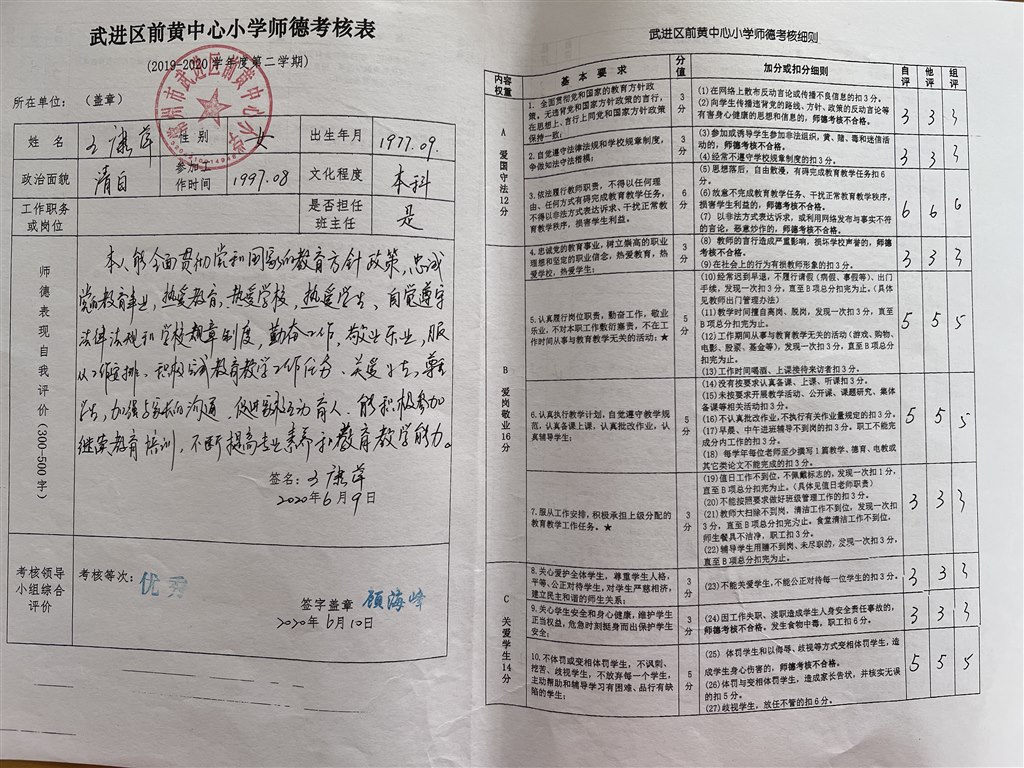 武进区前黄中心小学师德考核表
(2019-2020 学年度第二学期)
所在单位: (盖章)
姓 名 性 别 女 出生年月 1977.09.
政治面貌 清白 参加工作时间 1997.08 文化程度 本科
工作职务或岗位 是否担任班主任 是
师德表现自我评价(300-500字)
本人能全面贯彻党和国家的教育方针政策,忠诚
党的教育事业,热爱教育,热爱学校,热爱学生、自觉遵守
法律法规和学校规章制度,勤奋工作,敬业乐业,服
从工作安排、积极完成教育教学工作任务、关爱学生,尊重
学生,加强与家长的沟通,促进家校互动育人、能积极参加
继续教育培训,不断提高专业素养和教育教学能力。
签名:
2020年6月9日
考核领导小组综合评价
考核等次: 优秀
签字盖章 顾海峰
2020年6月10日
武进区前黄中心小学师德考核细则
内容权重 基 本 要 求 分值 加分或扣分细则 自评 他评 组评
A 爱国守法12分
1. 全面贯彻党和国家的教育方针政策。无违背党和国家方针政策的言行,在思想上、言行上同党和国家方针政策保持一致;
3分
(1) 在网络上散布反动言论或传播不良信息的扣3分。
(2) 向学生传播违背党的路线、方针、政策的反动言论等有害身心健康的思想和信息的,师德考核不合格。
3 3 3
2. 自觉遵守法律法规和学校规章制度,争做如法守法楷模;
3分
(3) 参加或诱导学生参加非法组织,黄、赌、毒和迷信活动的,师德考核不合格。
(4) 经常不遵守学校规章制度的扣3分。
3 3 3
3. 依法履行教师职责,不得以任何理由、任何方式有碍完成教育教学任务,不得以非法方式表达诉求、干扰正常教育教学秩序,损害学生利益。
6分
(5) 思想落后,自由散漫,有碍完成教育教学任务扣6分。
(6) 故意不完成教育教学任务、干扰正常教育教学秩序,损害学生利益的,师德考核不合格。
(7) 以非法方式表达诉求,或利用网络发布与事实不符的言论,恶意炒作的,师德考核不合格。
6 6 6
B 爱岗敬业16分
4. 忠诚党的教育事业,树立崇高的职业理想和坚定的职业信念,热爱教育,热爱学校,热爱学生;
3分
(8) 教师的言行造成严重影响,损坏学校声誉的,师德考核不合格。
(9) 在社会上的行为有损教师形象的扣3分。
3 3 3
5. 认真履行岗位职责,勤奋工作,敬业乐业,不对本职工作敷衍塞责,不在工作时间从事与教育教学无关的活动;★
(10) 经常迟到早退,不履行请假(病假、事假等)、出门手续,发现一次扣3分,直至B项总分扣完为止。(具体见教师出门管理办法)
(11) 教学时间擅自离岗、脱岗,发现一次扣3分,直至B项总分扣完为止。
(12) 工作期间从事与教育教学无关的(游戏、购物、电影、股票、基金等),发现一次扣3分,直至B项总分扣完为止。
(13) 工作时间喝酒、上课接待来访者扣3分。
5 5 5
6. 认真执行教学计划,自觉遵守教学规范,认真备课上课,认真批改作业,认真辅导学生;
5分
(14) 没有按要求认真备课、上课、听课扣3分。
(15) 未按要求开展教学活动、公开课、课题研究、集体备课等相关活动扣3分。
(16) 不认真批改作业,不执行有关作业量规定的扣3分。
(17) 早晨、中午进班辅导不到岗的扣3分。职工不能完成分内工作的扣3分。
(18) 每学年每位老师至少撰写1篇教学、德育、电教或其它类论文不能完成的扣3分。
5 5 5
7. 服从工作安排,积极承担上级分配的教育教学工作任务。★
3分
(19) 值日工作不到位,不佩戴标志的,发现一次扣1分,直至B项总分扣完为止。(具体见值日老师职责)
(20) 不能按照要求做好班级管理工作的扣3分。
(21) 教师大扫除不到岗,清洁工作不到位,发现一次扣3分,直至B项总分扣完为止。食堂清洁工作不到位,师生餐具不洁净,职工扣3分。
(22) 辅导学生用膳不到岗、未尽职的,发现一次扣3分,直至B项总分扣完为止。
3 3 3
C 关爱学生14分
8. 关心爱护全体学生,尊重学生人格,平等、公正对待学生,对学生严慈相济,建立民主和谐的师生关系;
3分
(23) 不能关爱学生,不能公正对待每一位学生的扣3分。
3 3 3
9. 关心学生安全和身心健康,维护学生正当权益,危急时刻挺身而出保护学生安全;
3分
(24) 因工作失职、渎职造成学生人身安全责任事故的,师德考核不合格。发生食物中毒,职工扣6分。
3 3 3
10. 不体罚或变相体罚学生,不讽刺、挖苦、歧视学生,不放弃每一个学生,主动帮助和辅导学习有困难、品行有缺陷的学生;
5分
(25) 体罚学生和以侮辱、歧视等方式变相体罚学生,造成学生身心伤害的,师德考核不合格。
(26) 体罚与变相体罚学生,造成家长告状,并核实无误的扣5分。
(27) 歧视学生,放任不管的扣6分。
5 5 5